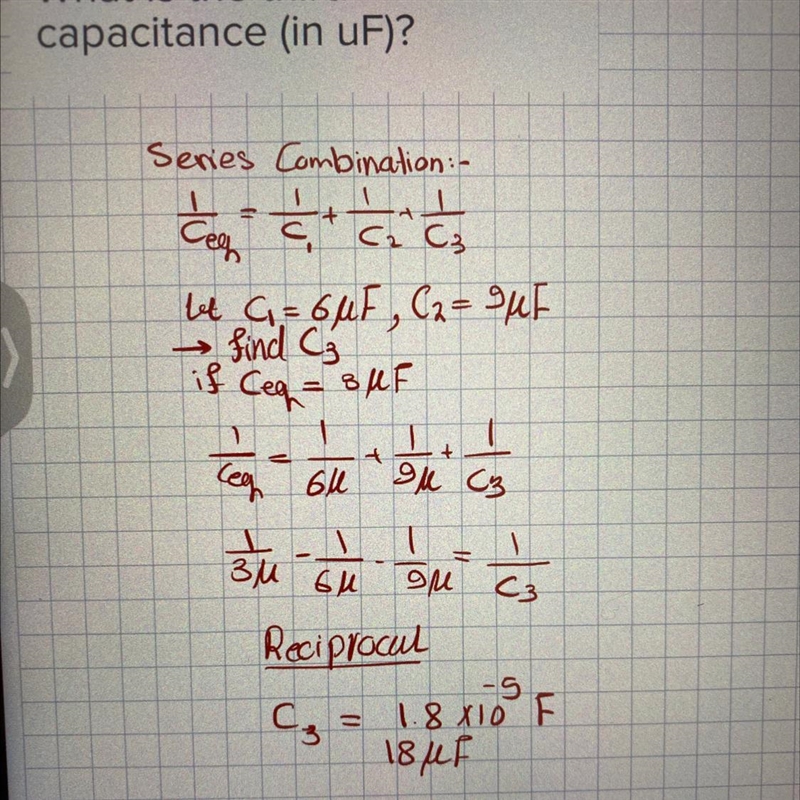 capacitance (in uF)?
Series Combination:-
1/Ceq = 1/C1 + 1/C2 + 1/C3
let C1 = 6μF, C2 = 9μF
→ find C3
if Ceq = 3μF
1/Ceq = 1/6μ + 1/9μ + 1/C3
1/3μ - 1/6μ - 1/9μ = 1/C3
Reciprocul
C3 = 1.8 x10^-5 F
18μF